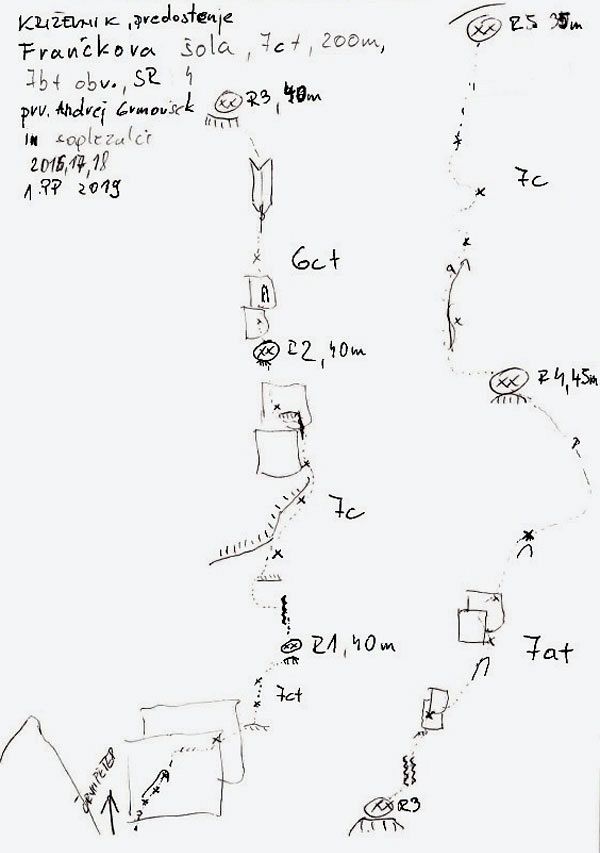 KRIŽEVNIK, predostenje
Frančkova šola, 7c+, 200m,
7b+ obv., SR 4
prv. Andrej Grmovšek
in soplezalci
2016,17,18
1.PP 2019
R5 35m
R3, 40m
7c
6c+
R2, 40m
R4, 45m
7c
R1, 40m
7a+
7c+
R3